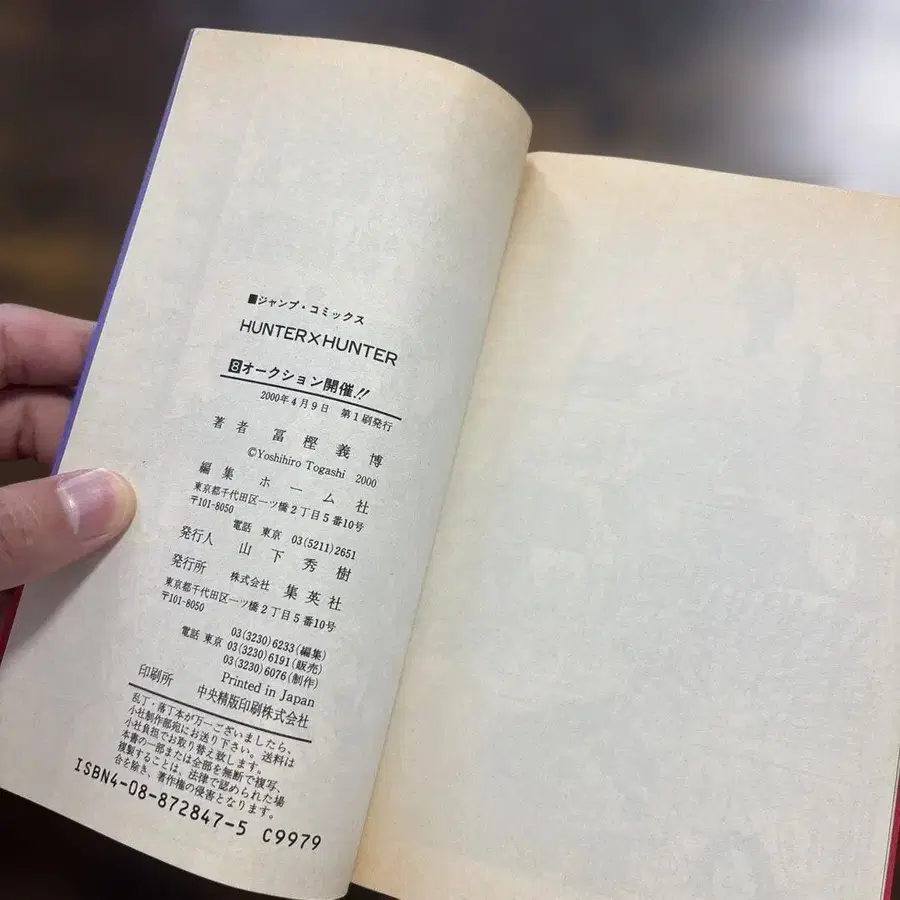 ■ジャンプ・コミックス
HUNTER×HUNTER
8オークション開催!!
2000年4月9日 第1刷発行
著者 冨樫義博
©Yoshihiro Togashi 2000
編集 ホーム社
東京都千代田区一ツ橋2丁目5番10号
〒101-8050
電話 東京 03(5211)2651
発行人 山下秀樹
発行所 株式会社 集英社
東京都千代田区一ツ橋2丁目5番10号
〒101-8050
03(3230)6233(編集)
電話 東京 03(3230)6191(販売)
03(3230)6076(制作)
Printed in Japan
印刷所 中央精版印刷株式会社
乱丁・落丁本が万一ございましたら、
小社制作部宛にお送り下さい。送料は
小社負担でお取り替え致します。
本書の一部または全部を無断で複写、
複製することは、法律で認められた場
合を除き、著作権の侵害となります。
ISBN4-08-872847-5 C9979